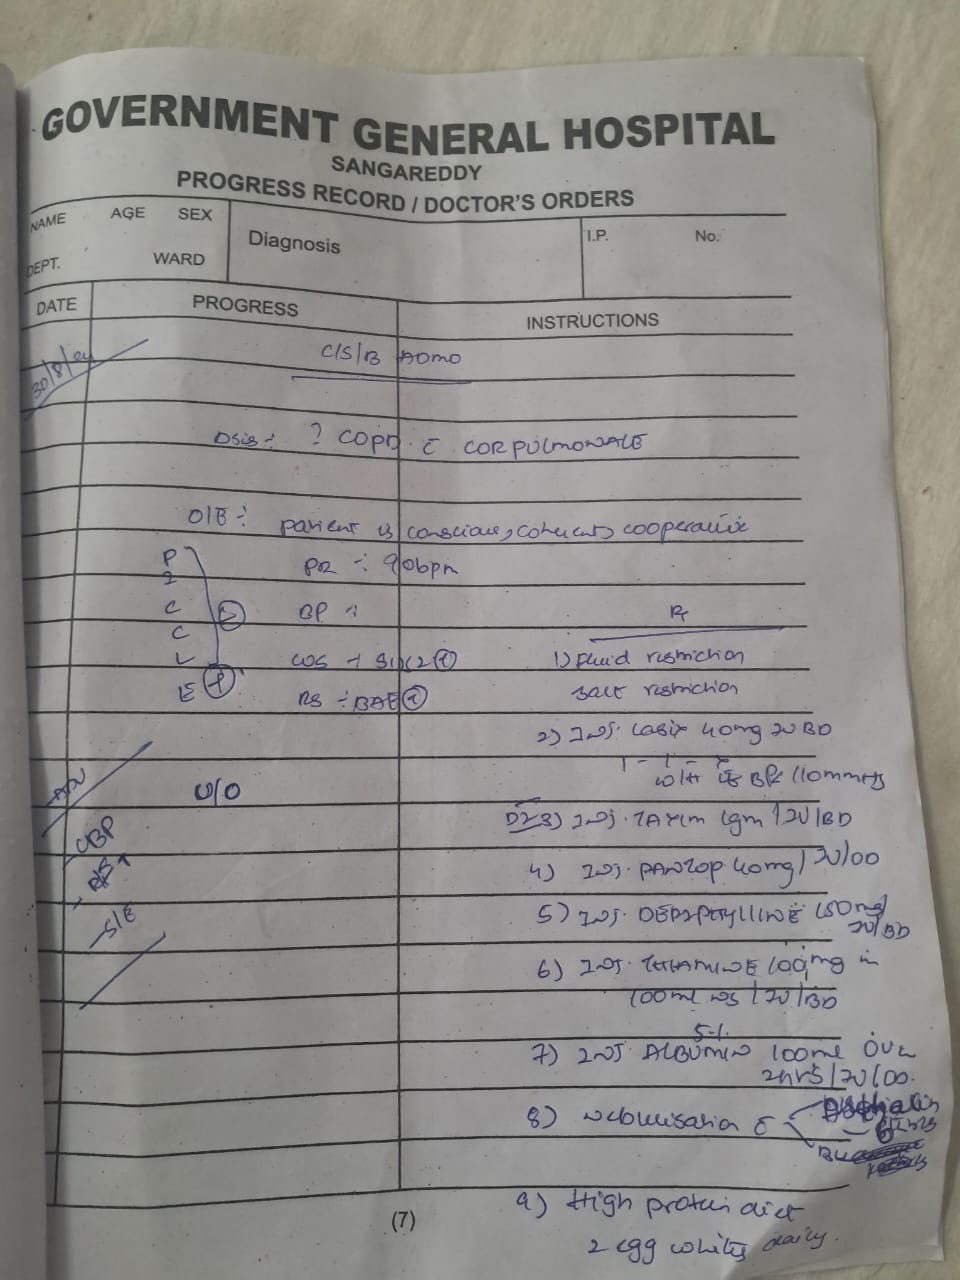 GOVERNMENT GENERAL HOSPITAL
SANGAREDDY
PROGRESS RECORD / DOCTOR'S ORDERS
NAME AGE SEX
DEPT. WARD
Diagnosis
I.P. No.
DATE PROGRESS INSTRUCTIONS
30/8/24
C/S/B ADMO
Dsis :- ? COPD c̄ COR PULMONALE
O/E :- patient is conscious, coherent, cooperative
P
I
C
C
L
E
PR :- 90bpm
BP :
CVS - S1S2 (+)
RS :- BAE (+)
U/O
Adv
CBP
- RFT
- S/E
Rx
1) Fluid restriction
salt restriction
2) INJ. Lasix 40mg IV BD
1 - 1 -
w/H if BP< 110mmHg
D2 3) INJ. TAXIM 1gm / IV / BD
4) INJ. PANTOP 40mg / IV / OD
5) INJ. DERIPHYLLINE 150mg / IV / BD
6) INJ. THIAMINE 100mg in
100ml NS / IV / BD
7) INJ. ALBUMIN 5% 100ml over
2hrs / IV / OD.
8) Nebulisation c̄ Asthalin
9) High protein diet
2 egg whites daily.
(7)